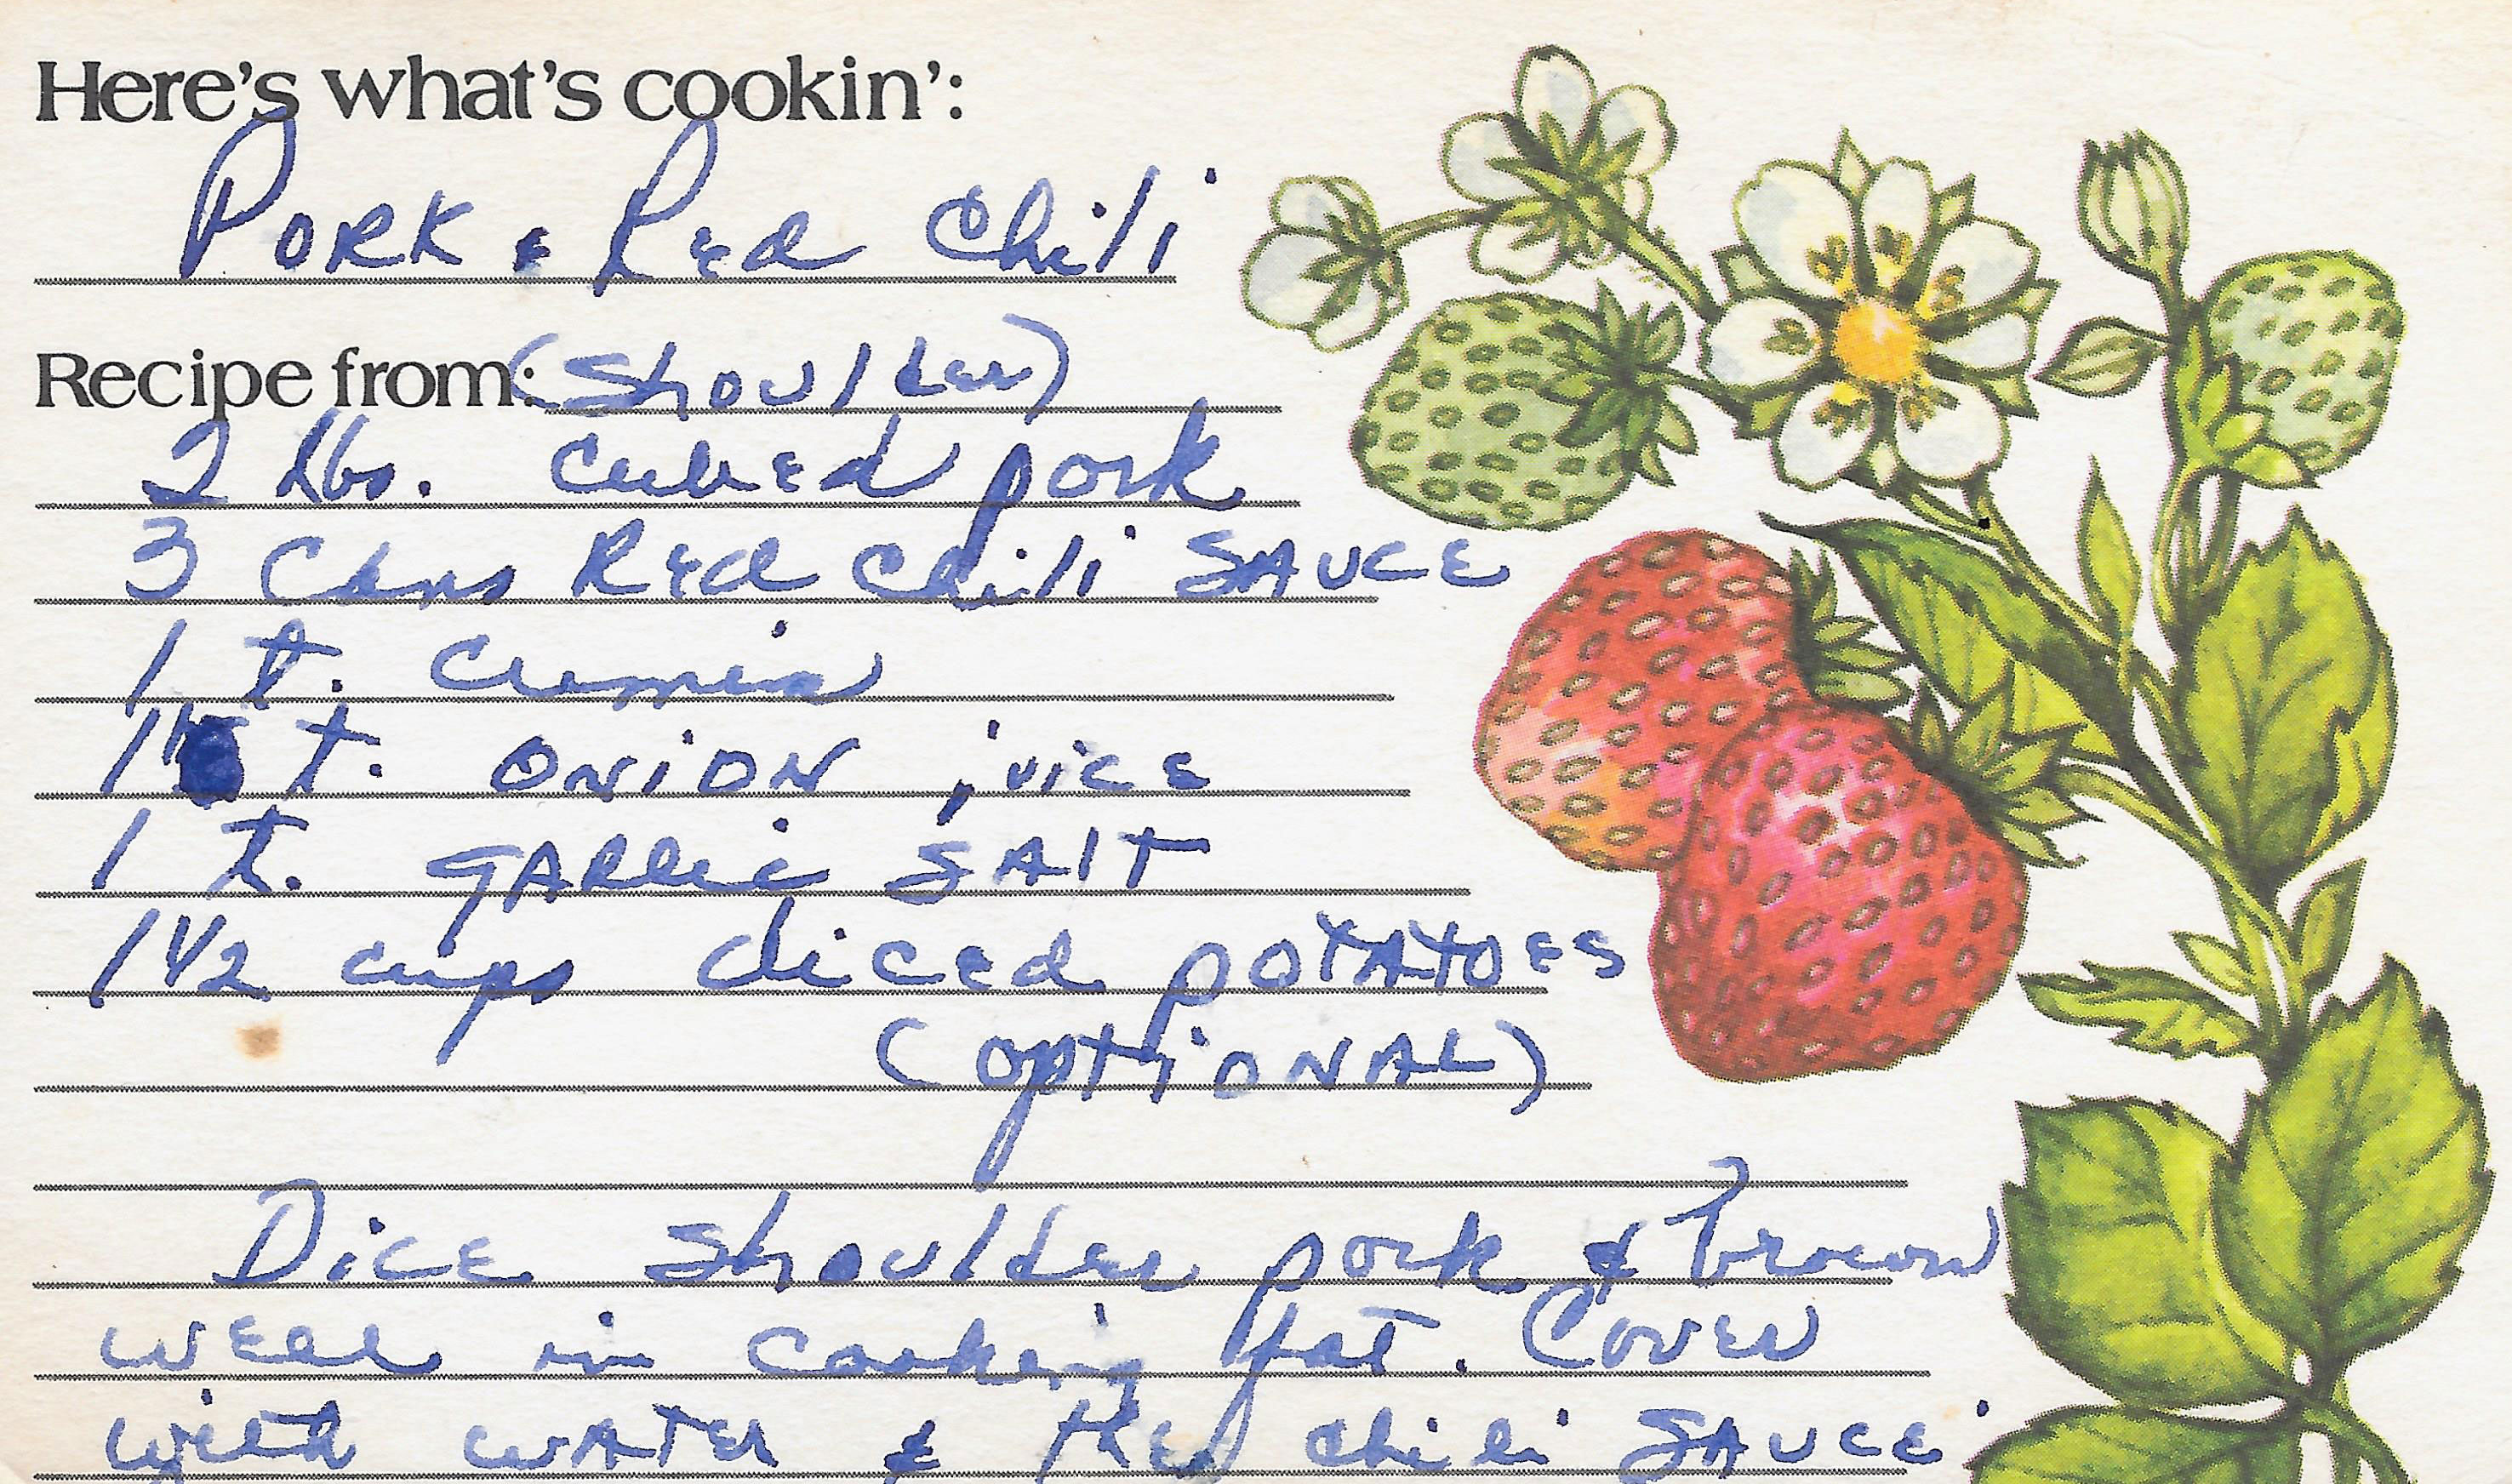 Here's what's cookin':
Pork & Red Chili
Recipe from: (Shoulder)
2 lbs. cubed pork
3 Cans Red Chili SAUCE
1 t. Cumin
1 t. ONION juice
1 t. gARlic SAlT
1 1/2 cups diced pOTATOES
(optiONAL)
Dice Shoulder pork & brown
well in cooking fat. Cover
with WATER & Red Chili SAUCE